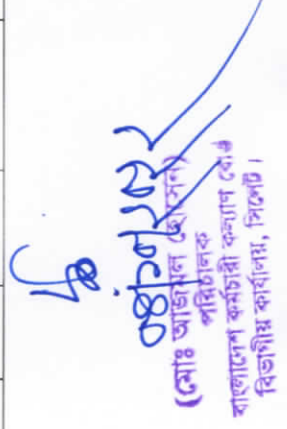 (মোঃ আজমল হোসেন)
পরিচালক
বাংলাদেশ কর্মচারী কল্যাণ বোর্ড
বিভাগীয় কার্যালয়, সিলেট।